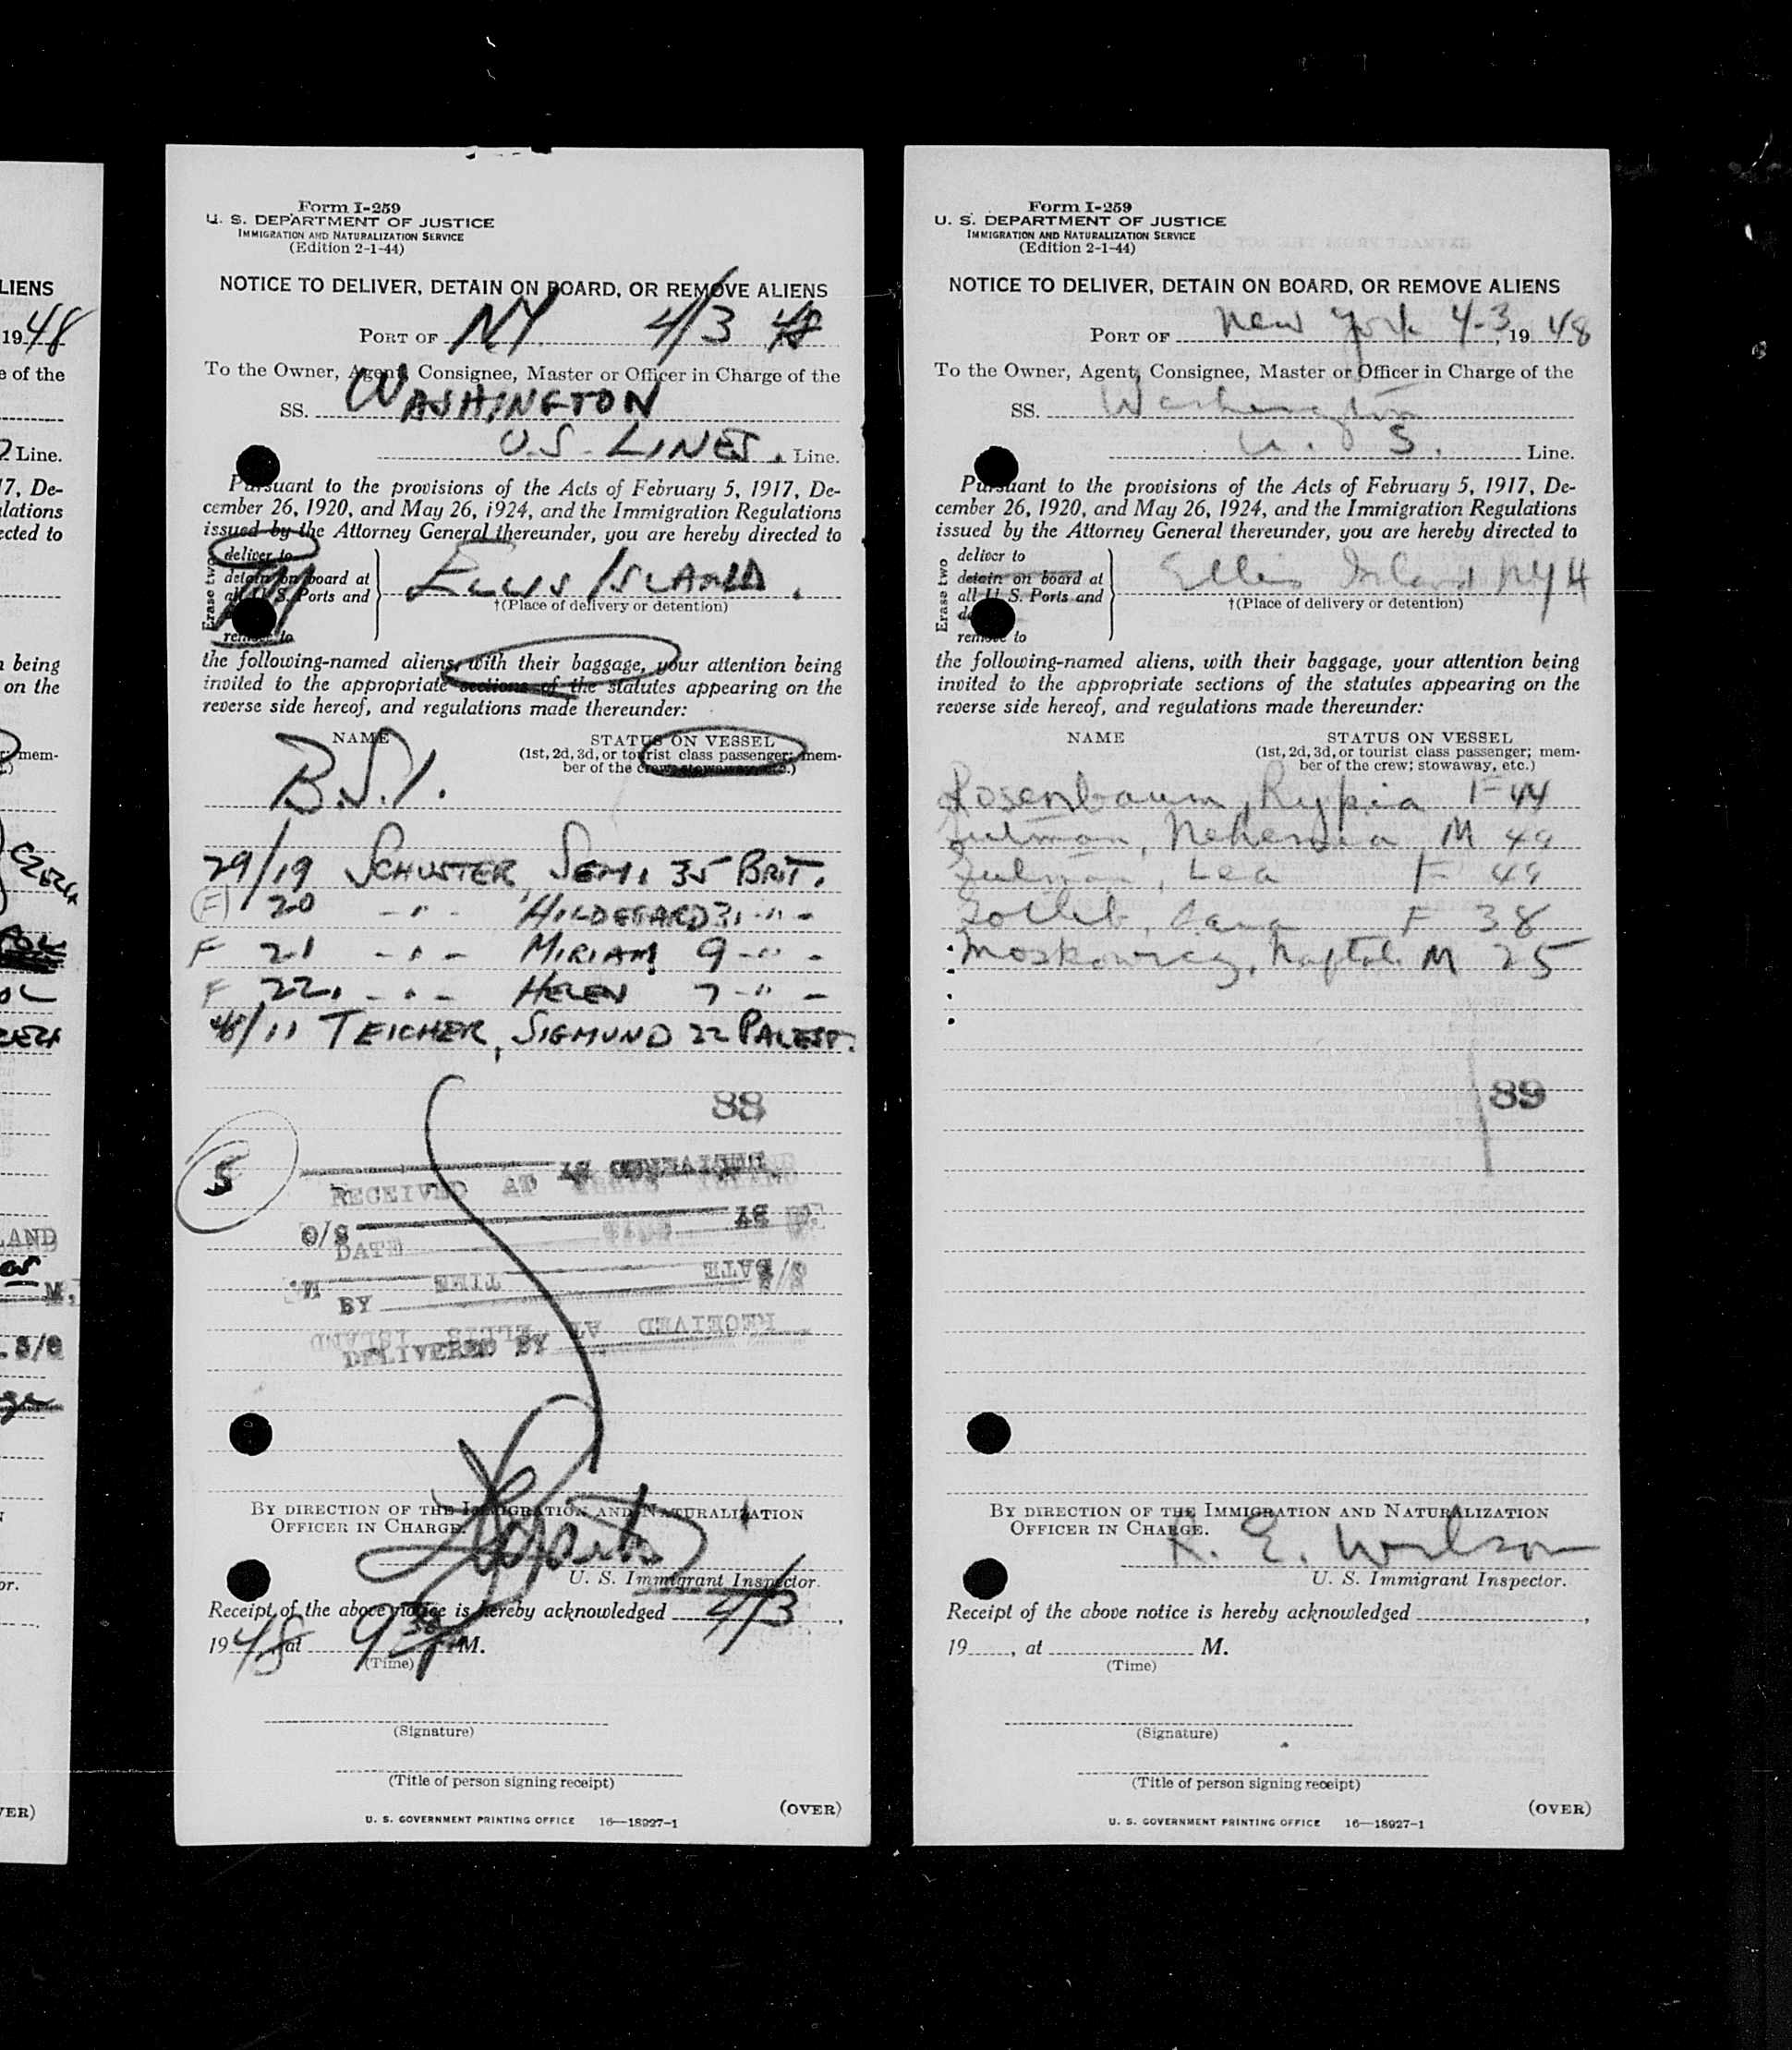 LIENS
1948
e of the
Line.
17, De-
lations
ected to
being
on the
mem-
CZECH
LAND
M.
S/O
or.
VER)
Form I-259
U. S. DEPARTMENT OF JUSTICE
IMMIGRATION AND NATURALIZATION SERVICE
(Edition 2-1-44)
NOTICE TO DELIVER, DETAIN ON BOARD, OR REMOVE ALIENS
PORT OF NY. 4/3 48
To the Owner, Agent, Consignee, Master or Officer in Charge of the
SS. WASHINGTON
U.S. LINES. Line.
Pursuant to the provisions of the Acts of February 5, 1917, De-
cember 26, 1920, and May 26, 1924, and the Immigration Regulations
issued by the Attorney General thereunder, you are hereby directed to
Erase two
deliver to
detain on board at
all U. S. Ports and
remove to
ELLIS ISLAND.
†(Place of delivery or detention)
the following-named aliens, with their baggage, your attention being
invited to the appropriate sections of the statutes appearing on the
reverse side hereof, and regulations made thereunder:
NAME STATUS ON VESSEL
(1st, 2d, 3d, or tourist class passenger; mem-
ber of the crew; stowaway, etc.)
B.S.I.
29/19 SCHUSTER, SEMI 35 BRIT.
(F) 20 - " - HILDEGARD 31 - " -
F 21 - " - MIRIAM 9 - " -
F 22 - " - HELEN 7 - " -
48/11 TEICHER, SIGMUND 22 PALEST.
88
5
DELIVERED BY
RECEIVED AT ELLIS ISLAND
BY
S/O
DATE
DATE TIME M.
BY
RECEIVED AT ELLIS ISLAND
DELIVERED BY
BY DIRECTION OF THE IMMIGRATION AND NATURALIZATION
OFFICER IN CHARGE.
U. S. Immigrant Inspector.
Receipt of the above notice is hereby acknowledged 4/3,
1948 at 9 30 M.
(Time)
(Signature)
(Title of person signing receipt)
(OVER)
U. S. GOVERNMENT PRINTING OFFICE 16—18927-1
Form I-259
U. S. DEPARTMENT OF JUSTICE
IMMIGRATION AND NATURALIZATION SERVICE
(Edition 2-1-44)
NOTICE TO DELIVER, DETAIN ON BOARD, OR REMOVE ALIENS
PORT OF New York 4-3, 1948
To the Owner, Agent, Consignee, Master or Officer in Charge of the
SS. Washington
U. S. Line.
Pursuant to the provisions of the Acts of February 5, 1917, De-
cember 26, 1920, and May 26, 1924, and the Immigration Regulations
issued by the Attorney General thereunder, you are hereby directed to
Erase two
deliver to
detain on board at
all U. S. Ports and
remove to
Ellis Island NYH
†(Place of delivery or detention)
the following-named aliens, with their baggage, your attention being
invited to the appropriate sections of the statutes appearing on the
reverse side hereof, and regulations made thereunder:
NAME STATUS ON VESSEL
(1st, 2d, 3d, or tourist class passenger; mem-
ber of the crew; stowaway, etc.)
Rosenbaum, Rypia F 44
Nehemia M 49
Lea F 49
F 38
Moskowicz, Naftali M 25
89
BY DIRECTION OF THE IMMIGRATION AND NATURALIZATION
OFFICER IN CHARGE.
R. E. Wilson
U. S. Immigrant Inspector.
Receipt of the above notice is hereby acknowledged ,
19 , at M.
(Time)
(Signature)
(Title of person signing receipt)
(OVER)
U. S. GOVERNMENT PRINTING OFFICE 16—18927-1